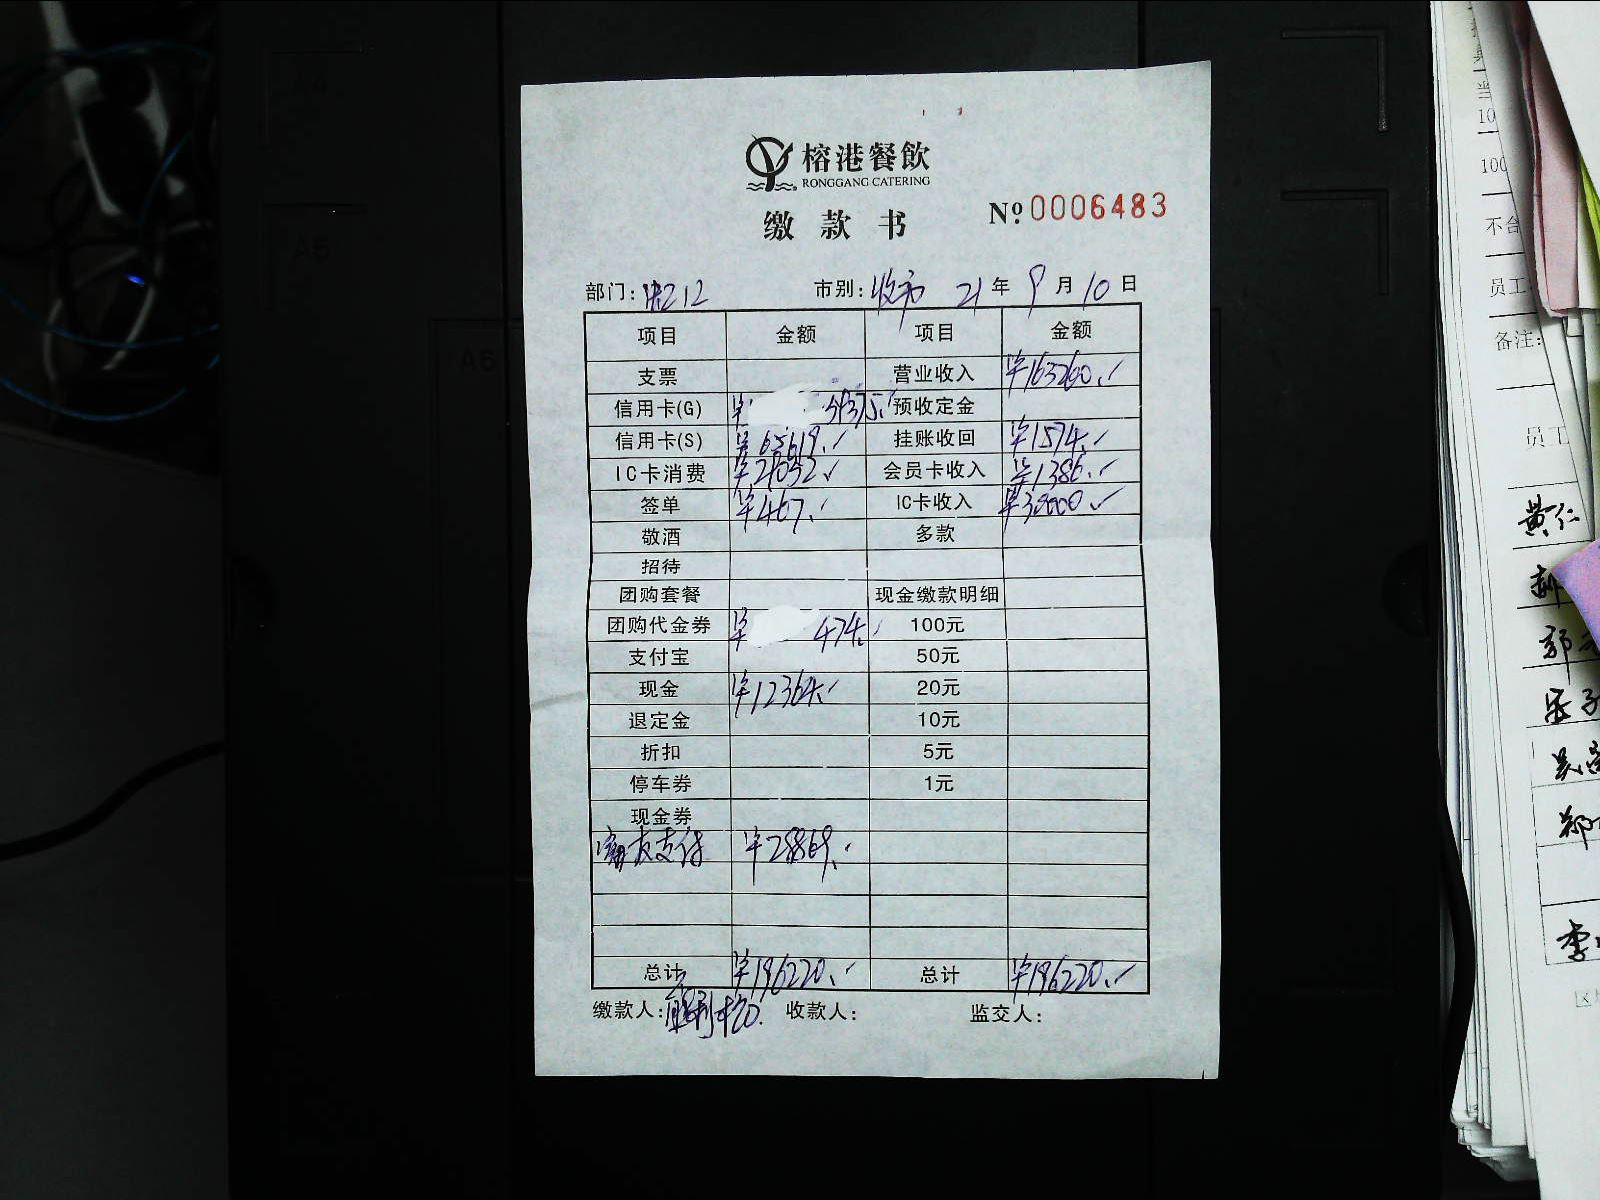 榕港餐飲
RONGGANG CATERING
缴款书
№ 0006483
部门: 市别: 收市 21 年 9 月 10 日
项目 金额 项目 金额
支票 营业收入 ¥163260.
信用卡(G) ¥ 预收定金
信用卡(S) ¥65619. 挂账收回 ¥1574.
IC卡消费 ¥ 会员卡收入 ¥1386.
签单 ¥467. IC卡收入 ¥30000.
敬酒 多款
招待
团购套餐 现金缴款明细
团购代金券 ¥474. 100元
支付宝 50元
现金 ¥12364. 20元
退定金 10元
折扣 5元
停车券 1元
现金券
支付 ¥28869.
总计 ¥196220. 总计 ¥196220.
缴款人: 收款人: 监交人:
A5
A6
10
100
不合
员工
备注:
员工
黄仁
郭
李